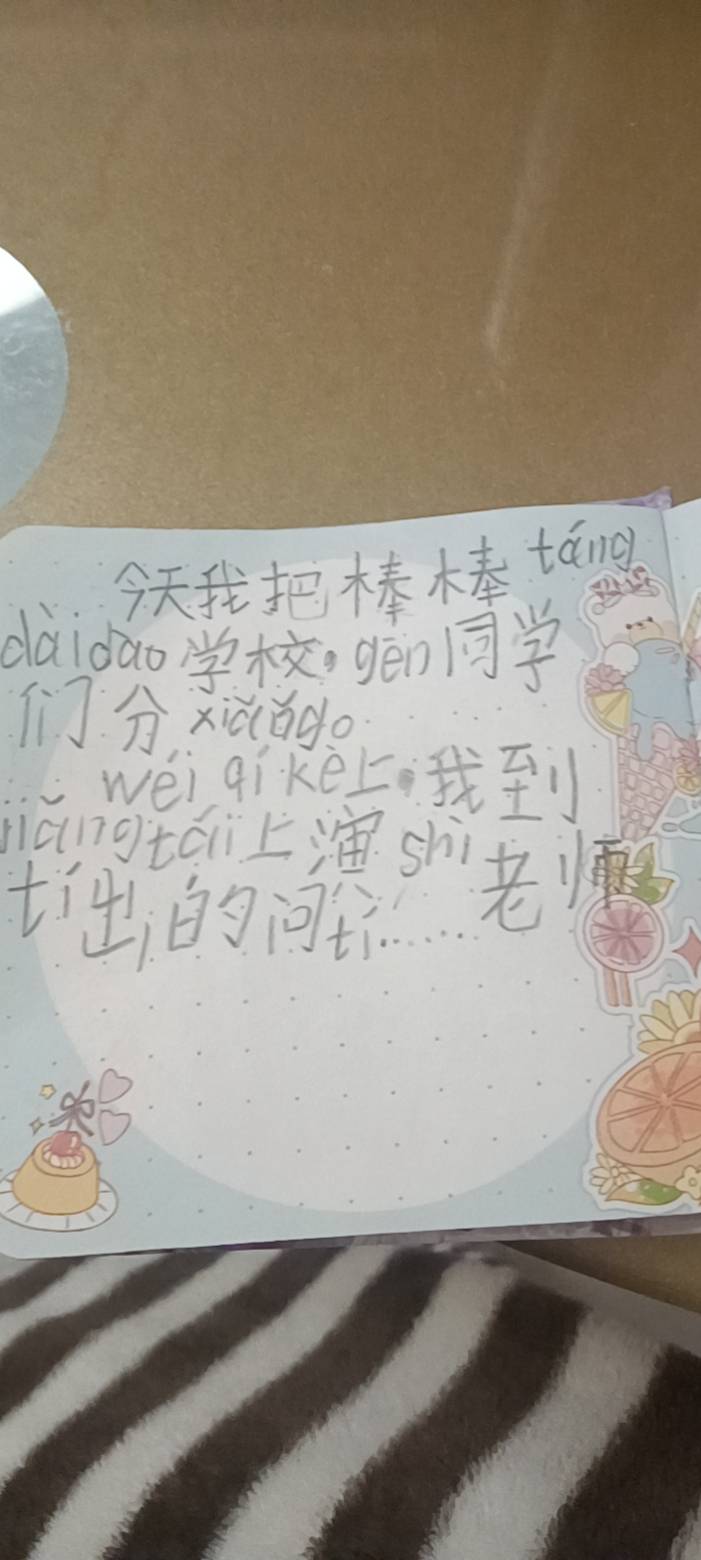 今天我把棒棒táng
dàidào学校，gēn同学
们分xiǎng。
wéi qí kè上，我到
jiǎngtái上演shì老师
tí出的问tí……